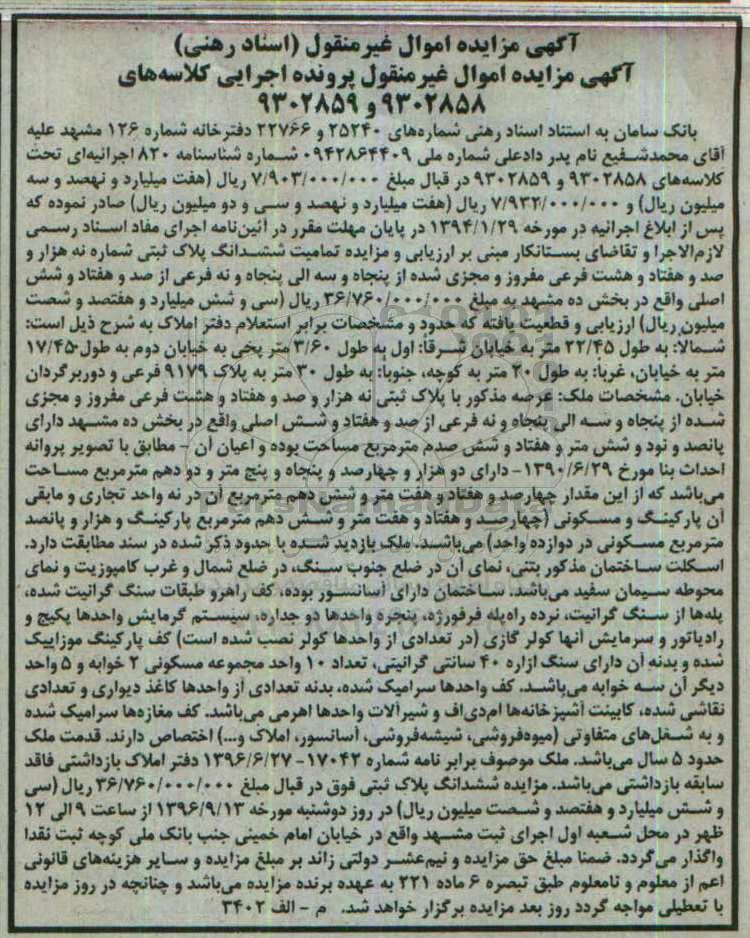 آگهی مزایده اموال غیرمنقول (اسناد رهنی)
آگهی مزایده اموال غیرمنقول پرونده اجرایی کلاسه‌های
۹۳۰۲۸۵۸ و ۹۳۰۲۸۵۹
بانک سامان به استناد اسناد رهنی شماره‌های ۲۵۲۴۰ و ۲۲۷۶۶ دفترخانه شماره ۱۲۶ مشهد علیه
آقای محمدشفیع نام پدر دادعلی شماره ملی ۰۹۴۲۸۶۴۴۰۹ شماره شناسنامه ۸۲۰ اجرائیه‌ای تحت
کلاسه‌های ۹۳۰۲۸۵۸ و ۹۳۰۲۸۵۹ در قبال مبلغ ۷/۹۰۳/۰۰۰/۰۰۰ ریال (هفت میلیارد و نهصد و سه
میلیون ریال) و ۷/۹۳۲/۰۰۰/۰۰۰ ریال (هفت میلیارد و نهصد و سی و دو میلیون ریال) صادر نموده که
پس از ابلاغ اجرائیه در مورخه ۱۳۹۴/۱/۲۹ در پایان مهلت مقرر در آئین‌نامه اجرای مفاد اسناد رسمی
لازم‌الاجرا و تقاضای بستانکار مبنی بر ارزیابی و مزایده تمامیت ششدانگ پلاک ثبتی شماره نه هزار و
صد و هفتاد و هشت فرعی مفروز و مجزی شده از پنجاه و سه الی پنجاه و نه فرعی از صد و هفتاد و شش
اصلی واقع در بخش ده مشهد به مبلغ ۳۶/۷۶۰/۰۰۰/۰۰۰ ریال (سی و شش میلیارد و هفتصد و شصت
میلیون ریال) ارزیابی و قطعیت یافته که حدود و مشخصات برابر استعلام دفتر املاک به شرح ذیل است:
شمالا: به طول ۲۲/۴۵ متر به خیابان شرقا: اول به طول ۳/۶۰ متر پخی به خیابان دوم به طول ۱۷/۴۵
متر به خیابان، غربا: به طول ۲۰ متر به کوچه، جنوبا: به طول ۳۰ متر به پلاک ۹۱۷۹ فرعی و دوربرگردان
خیابان. مشخصات ملک: عرصه مذکور با پلاک ثبتی نه هزار و صد و هفتاد و هشت فرعی مفروز و مجزی
شده از پنجاه و سه الی پنجاه و نه فرعی از صد و هفتاد و شش اصلی واقع در بخش ده مشهد دارای
پانصد و نود و شش متر و هفتاد و شش صدم مترمربع مساحت بوده و اعیان آن - مطابق با تصویر پروانه
احداث بنا مورخ ۱۳۹۰/۶/۲۹- دارای دو هزار و چهارصد و پنجاه و پنج متر و دو دهم مترمربع مساحت
می‌باشد که از این مقدار چهارصد و هفتاد و هفت متر و شش دهم مترمربع آن در نه واحد تجاری و مابقی
آن پارکینگ و مسکونی (چهارصد و هفتاد و هفت متر و شش دهم مترمربع پارکینگ و هزار و پانصد
مترمربع مسکونی در دوازده واحد) می‌باشد. ملک بازدید شده با حدود ذکر شده در سند مطابقت دارد.
اسکلت ساختمان مذکور بتنی، نمای آن در ضلع جنوب سنگ، در ضلع شمال و غرب کامپوزیت و نمای
محوطه سیمان سفید می‌باشد. ساختمان دارای آسانسور بوده، کف راهرو طبقات سنگ گرانیت شده،
پله‌ها از سنگ گرانیت، نرده راه‌پله فرفورژه، پنجره واحدها دو جداره، سیستم گرمایش واحدها پکیج و
رادیاتور و سرمایش آنها کولر گازی (در تعدادی از واحدها کولر نصب شده است) کف پارکینگ موزاییک
شده و بدنه آن دارای سنگ ازاره ۴۰ سانتی گرانیتی، تعداد ۱۰ واحد مجموعه مسکونی ۲ خوابه و ۵ واحد
دیگر آن سه خوابه می‌باشد. کف واحدها سرامیک شده، بدنه تعدادی از واحدها کاغذ دیواری و تعدادی
نقاشی شده، کابینت آشپزخانه‌ها ام‌دی‌اف و شیرآلات واحدها اهرمی می‌باشد. کف مغازه‌ها سرامیک شده
و به شغل‌های متفاوتی (میوه‌فروشی، شیشه‌فروشی، آسانسور، املاک و...) اختصاص دارند. قدمت ملک
حدود ۵ سال می‌باشد. ملک موصوف برابر نامه شماره ۱۷۰۴۲- ۱۳۹۶/۶/۲۷ دفتر املاک بازداشتی فاقد
سابقه بازداشتی می‌باشد. مزایده ششدانگ پلاک ثبتی فوق در قبال مبلغ ۳۶/۷۶۰/۰۰۰/۰۰۰ ریال (سی
و شش میلیارد و هفتصد و شصت میلیون ریال) در روز دوشنبه مورخه ۱۳۹۶/۹/۱۳ از ساعت ۹ الی ۱۲
ظهر در محل شعبه اول اجرای ثبت مشهد واقع در خیابان امام خمینی جنب بانک ملی کوچه ثبت نقدا
واگذار می‌گردد. ضمنا مبلغ حق مزایده و نیم‌عشر دولتی زائد بر مبلغ مزایده و سایر هزینه‌های قانونی
اعم از معلوم و نامعلوم طبق تبصره ۶ ماده ۲۲۱ به عهده برنده مزایده می‌باشد و چنانچه در روز مزایده
با تعطیلی مواجه گردد روز بعد مزایده برگزار خواهد شد. م - الف ۳۴۰۲